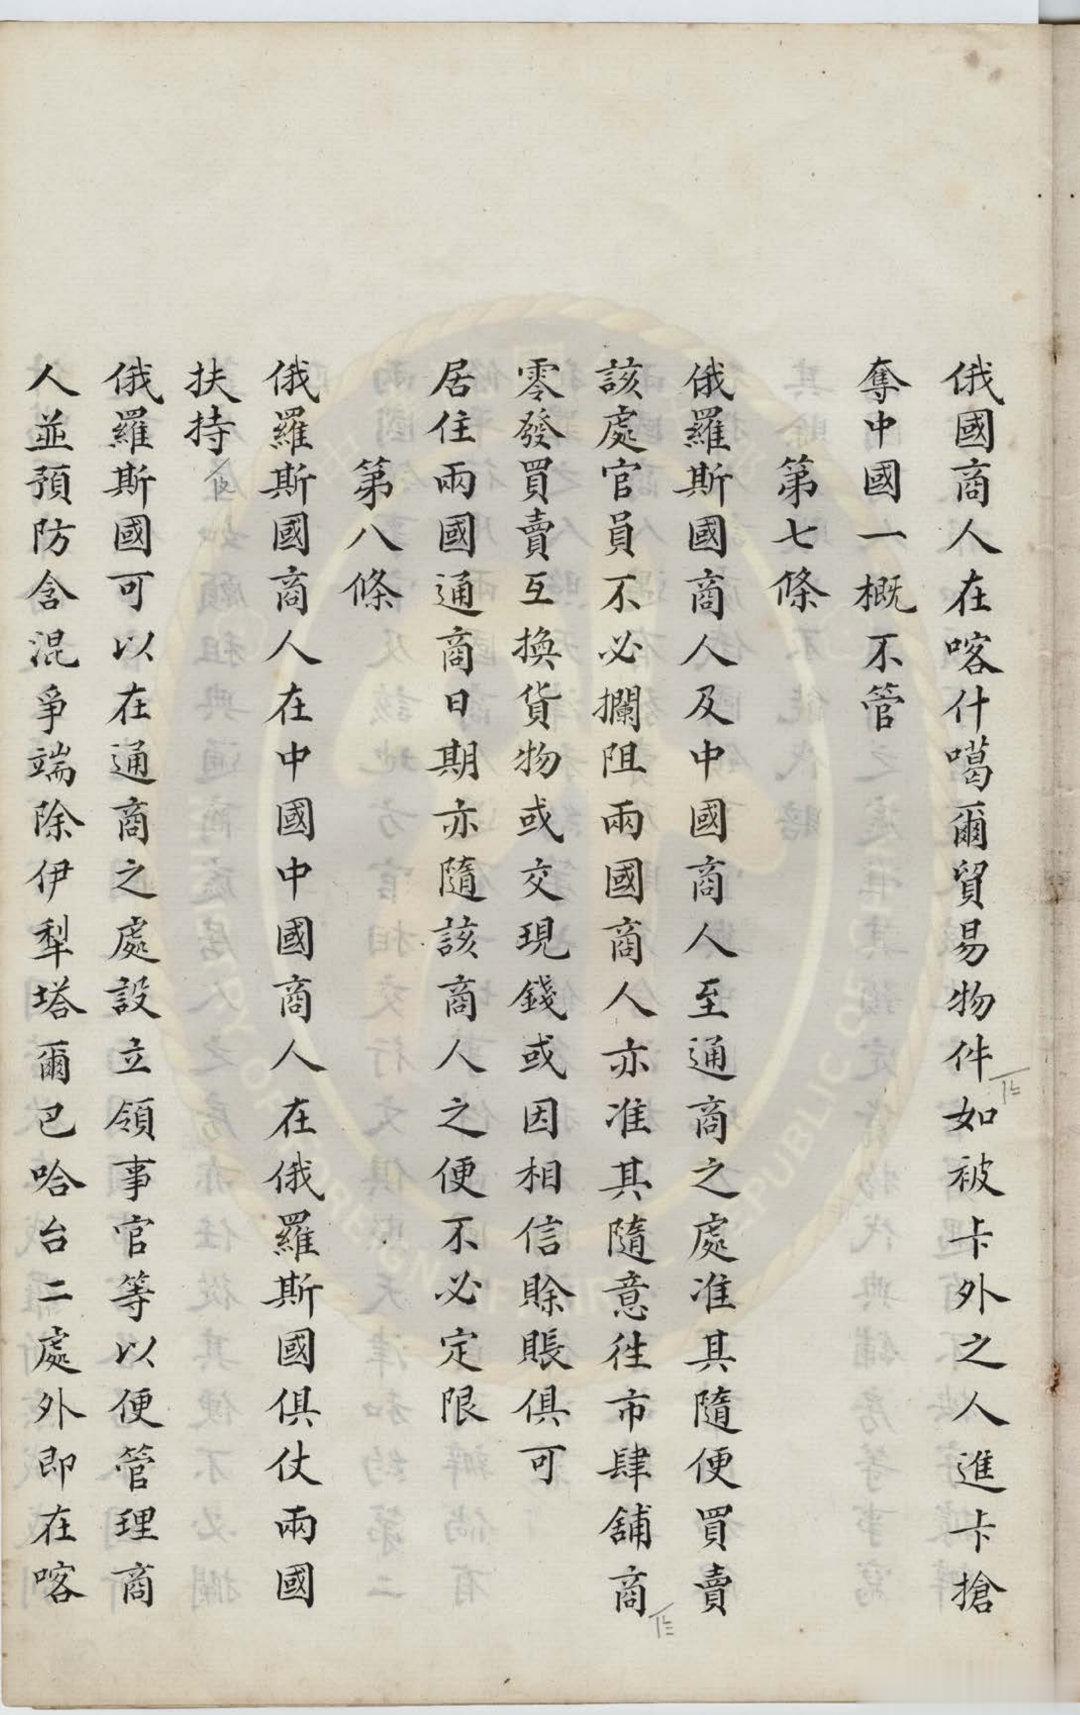 俄國商人在喀什噶爾貿易物件如被卡外之人進卡搶
奪中國一概不管
第七條
俄羅斯國商人及中國商人至通商之處准其隨便買賣
該處官員不必攔阻兩國商人亦准其隨意往市肆舖商
零發買賣互換貨物或交現錢或因相信賒賬俱可
居住兩國通商日期亦隨該商人之便不必定限
第八條
俄羅斯國商人在中國中國商人在俄羅斯國俱仗兩國
扶持
俄羅斯國可以在通商之處設立領事官等以便管理商
人並預防含混爭端除伊犁塔爾巴哈台二處外即在喀